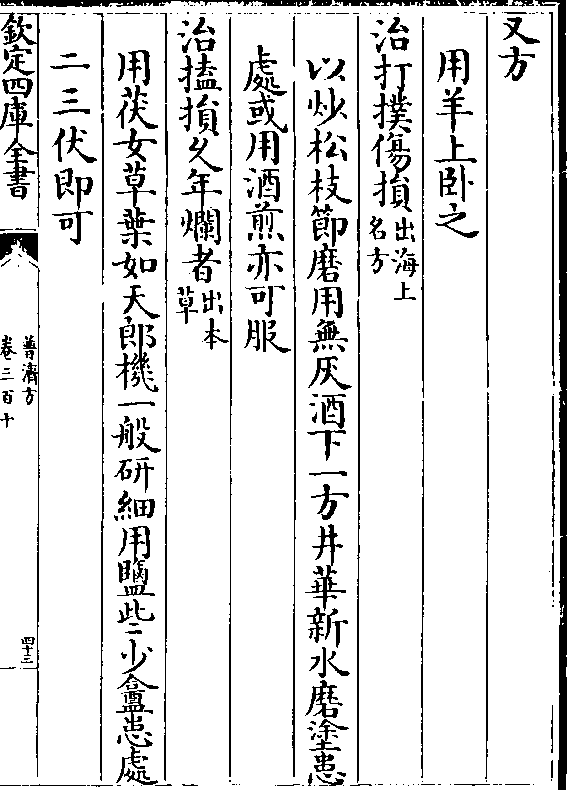 又方
用羊上卧之
治打撲傷損出海上名方
以炒松枝節磨用無灰酒下一方井華新水磨塗患
處或用酒煎亦可服
治搕損久年爛者出本草
用茯女草葉如天郎機一般研細用鹽些二少盦患處
二三伏即可
欽定四庫全書
普濟方
卷三百十
四十三